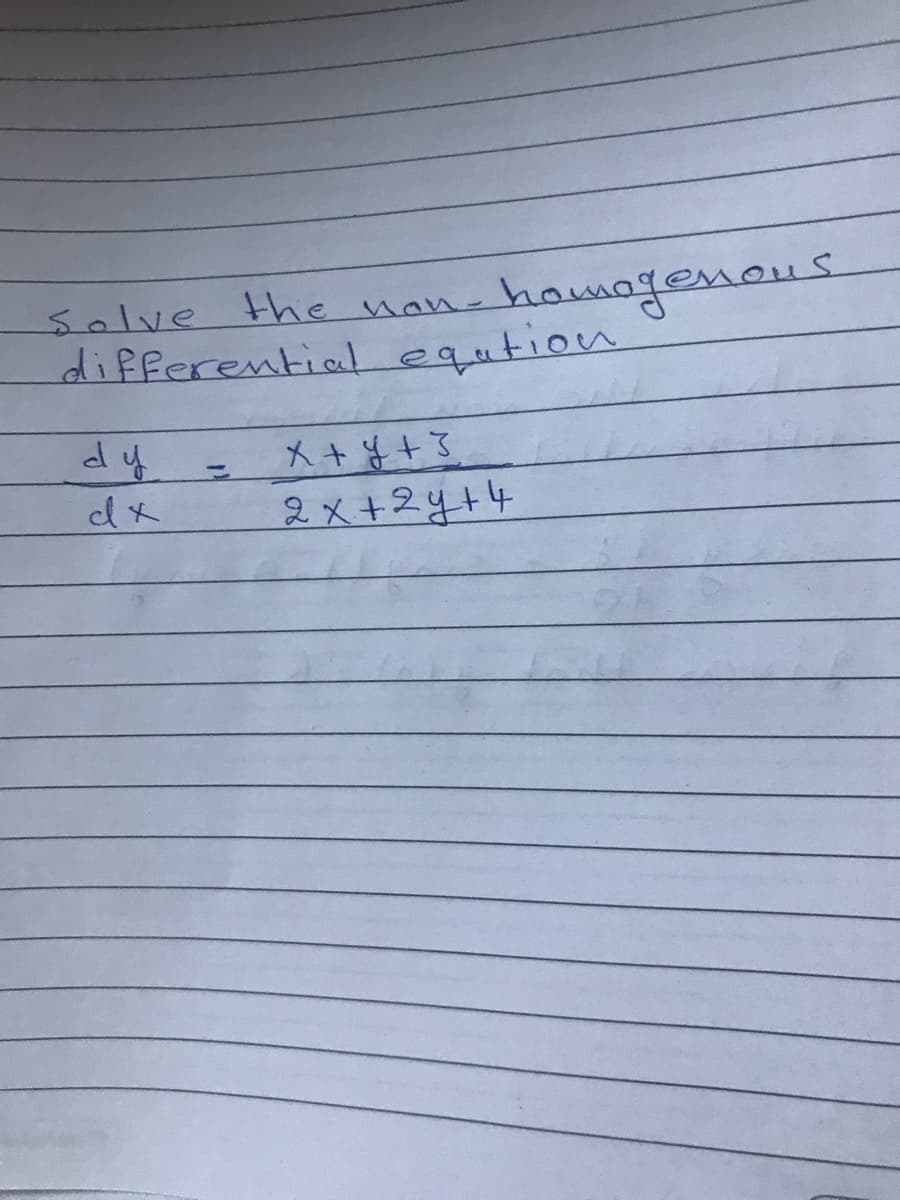 Solve the non-homogenous
differential eqution
dy/dx = x+y+3 / 2x+2y+4